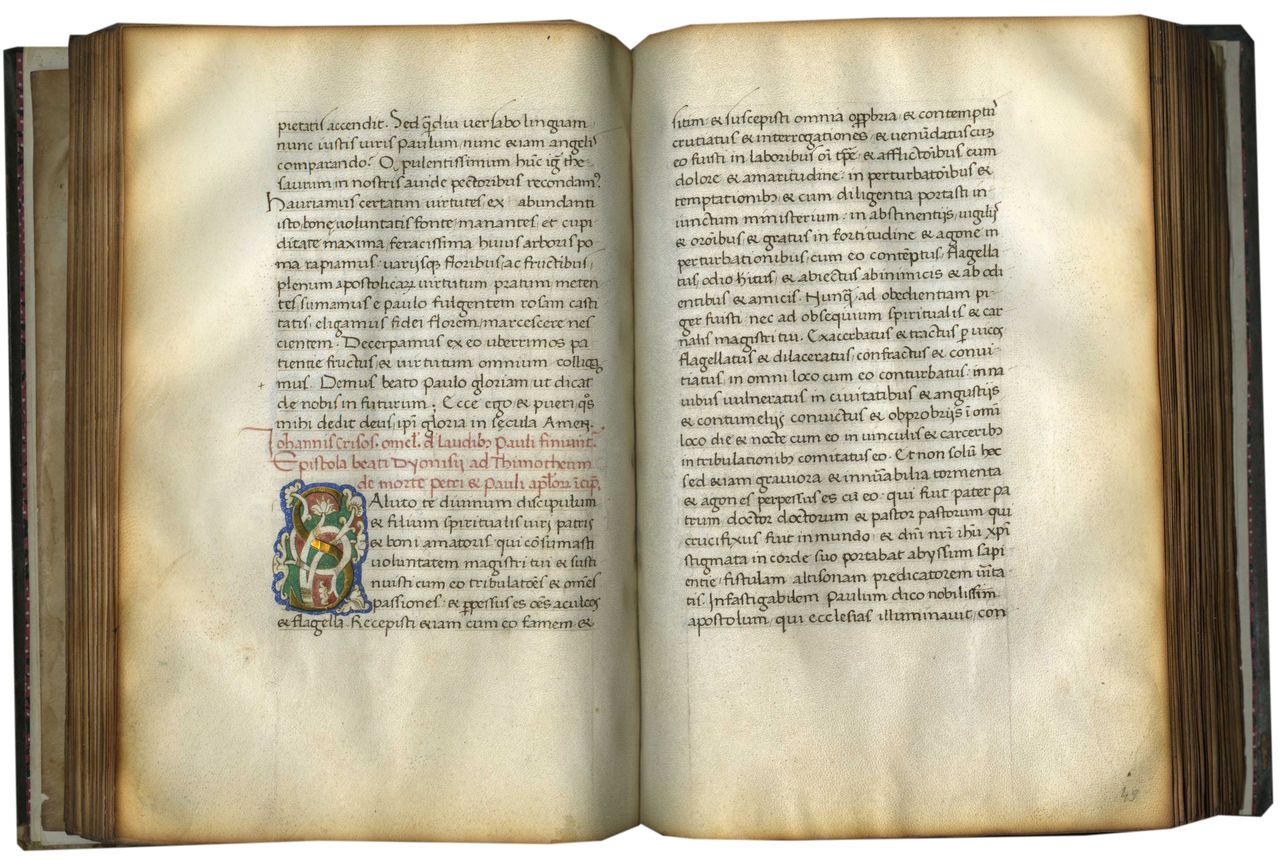 pietatis accendit. Sed q̃diu uerſabo linguam
nunc iustis uiris Paulum, nunc &iam angelis
comparando? O pulentissimum hũc ig̃ the-
saurum in nostris auide pectoribus recondam?
Hauriamus certatim uirtutes ex abundanti
isto bonę uoluntatis fonte manantes et cupi
ditate maxima feracissima huius arboris po
ma rapiamus uariisq; floribus, ac fructibus,
plenum apostolicaꝝ uirtutum pratum meten
tes sumamus e paulo fulgentem rosam casti
tatis, eligamus fidei florem, marcescere nes
cientem. Decerpamus ex eo uberrimos pa
tientie fructus, & uirtutum omnium colliga
mus. Demus beato Paulo gloriam ut dicat
de nobis in futurum. Ecce ego & pueri q̃s
mihi dedit deus, ip̃i gloria in secula Amen.
Iohannis Crisos. omel. d̄ laudibꝫ Pauli finiunt.
Epistola beati Dyonisij ad Thimotheum
de morte petri & Pauli ap̃loꝝ icip̃.
Saluto te diuinum discipulum
& filium spiritualis uiri patris
& boni amatoris qui cõsumasti
uoluntatem magistri tui & susti
nuisti cum eo tribulatõẽs & om̃es
passiones & ꝑpessus es oẽs aculeos
& flagella. Recepisti &iam cum eo famem &
sitim & suscepisti omnia opp̃bria & contemptũ
cruciatus & interrogationes & uenũdatus cuʒ
eo fuisti in laboribus oĩ tp̃e & afflictõibus cum
dolore & amaritudine in perturbatõibus &
temptationibꝫ & cum diligentia portasti in
iunctum ministerium in abstinentijs, uigilijs
& orõibus & gratus in fortitudine & agone in
perturbationibus, cum eo contẽptus, flagella
tus, odio hitus & abiectus ab inimicis & ab odi
entibus & amicis. Nunq̃ ad obedientiam pi-
ger fuisti nec ad obsequium spiritualis & car
nalis magistri tui. Exacerbatus & tractus ꝑ uicos
flagellatus & dilaceratus confractus & conui-
tiatus, in omni loco cum eo conturbatus in na
uibus uulneratus in ciuitatibus & angustijs
& contumelijs conuictus & obprobrijs ĩ om̃i
loco die & nocte cum eo in uinculis & carceribꝫ
in tribulationibꝫ comitatus eo. Et non solũ hec
sed &iam grauiora & innũabilia tormenta
& agones perpessus es cũ eo qui fuit pater pa
trum, doctor doctorum & pastor pastorum qui
crucifixus fuit in mundo & dñi nr̃i ihũ xp̃i
stigmata in corde suo portabat abyssum sapi
entie fistulam altisonam predicatorem ũita
tis. Infastigabilem Paulum dico nobilissim
apostolum, qui ecclesias illuminauit, con
49